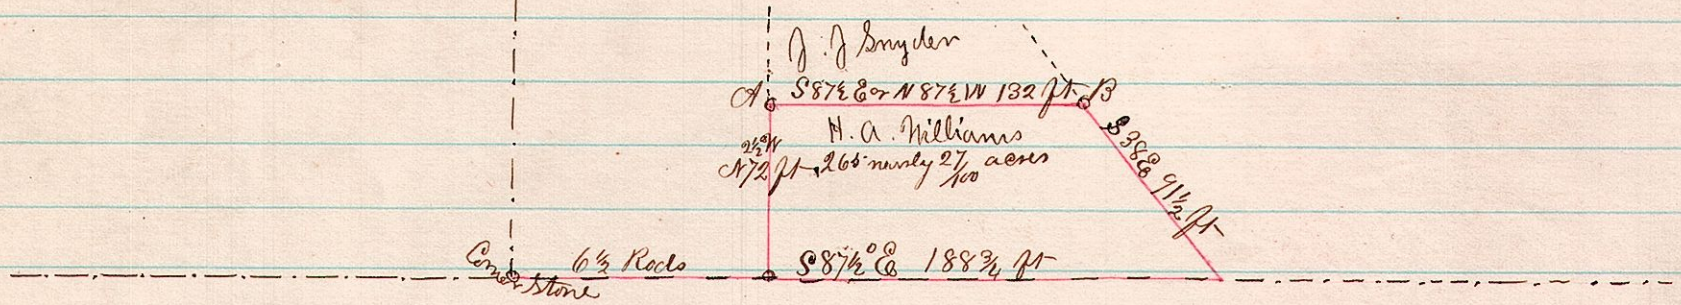 J. J Snyder
A S 87½ E or N 87½ W 132 ft B
H. A. Williams
2½° W
N 72 ft .265 nearly 27/100 acres
S 38 E 91½ ft
Corner Stone
6½ Rods
S 87½° E 188¾ ft